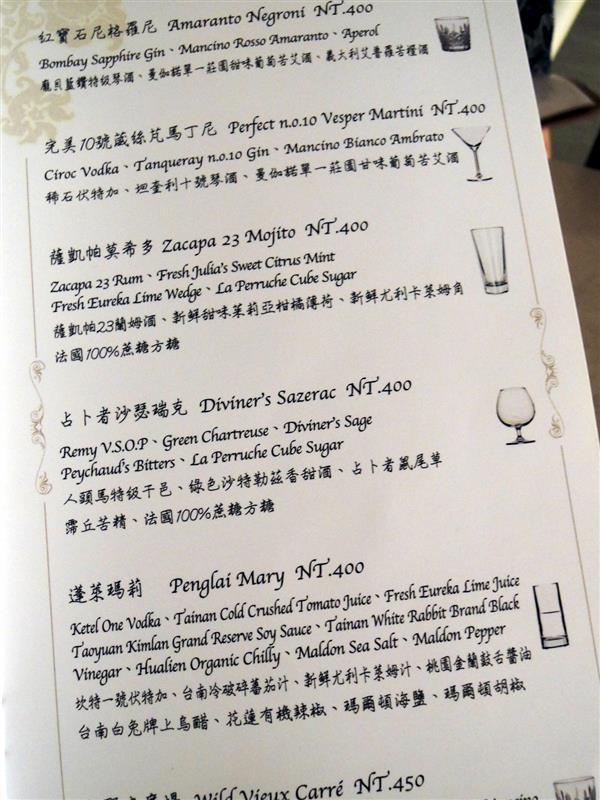 紅寶石尼格羅尼 Amaranto Negroni NT.400
Bombay Sapphire Gin、Mancino Rosso Amaranto、Aperol
龐貝藍鑽特級琴酒、曼伽諾單一莊園甜味葡萄苦艾酒、義大利艾普羅苦橙酒
完美10號葳絲芃馬丁尼 Perfect n.o.10 Vesper Martini NT.400
Ciroc Vodka、Tanqueray n.o.10 Gin、Mancino Bianco Ambrato
稀石伏特加、坦奎利十號琴酒、曼伽諾單一莊園甘味葡萄苦艾酒
薩凱帕莫希多 Zacapa 23 Mojito NT.400
Zacapa 23 Rum、Fresh Julia's Sweet Citrus Mint
Fresh Eureka Lime Wedge、La Perruche Cube Sugar
薩凱帕23蘭姆酒、新鮮甜味茱莉亞柑橘薄荷、新鮮尤利卡萊姆角
法國100%蔗糖方糖
占卜者沙瑟瑞克 Diviner's Sazerac NT.400
Remy V.S.O.P、Green Chartreuse、Diviner's Sage
Peychaud's Bitters、La Perruche Cube Sugar
人頭馬特級干邑、綠色沙特勒茲香甜酒、占卜者鼠尾草
霈丘苦精、法國100%蔗糖方糖
蓬萊瑪莉 Penglai Mary NT.400
Ketel One Vodka、Tainan Cold Crushed Tomato Juice、Fresh Eureka Lime Juice
Taoyuan Kimlan Grand Reserve Soy Sauce、Tainan White Rabbit Brand Black
Vinegar、Hualien Organic Chilly、Maldon Sea Salt、Maldon Pepper
坎特一號伏特加、台南冷破碎蕃茄汁、新鮮尤利卡萊姆汁、桃園金蘭鼓舌醬油
台南白兔牌上烏醋、花蓮有機辣椒、瑪爾頓海鹽、瑪爾頓胡椒
Wild Vieux Carré NT.450